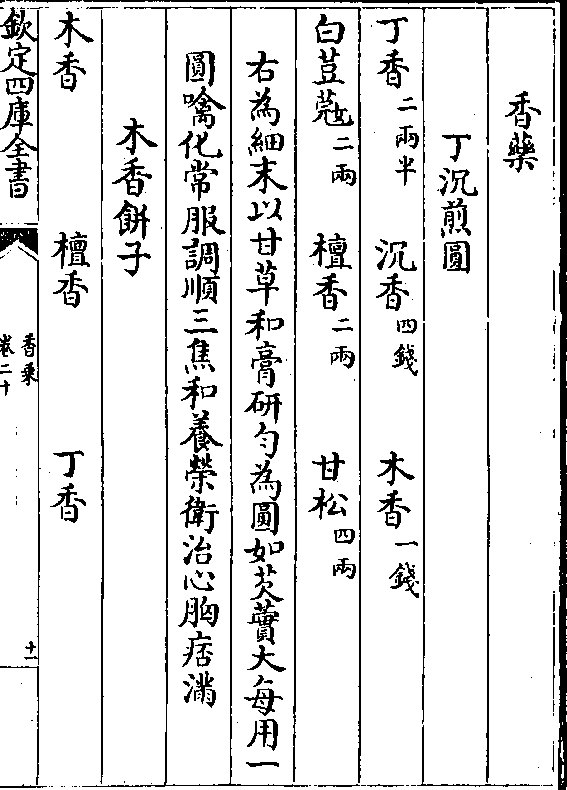 香藥
丁沉煎圓
丁香二兩半 沉香四錢 木香一錢
白荳蔻二兩 檀香二兩 甘松四兩
右為細末以甘草和膏研勻為圓如芡蕒大每用一
圓噙化常服調順三焦和養榮衛治心胸痞滿
木香餅子
木香 檀香 丁香
欽定四庫全書
香乘
卷二十
十一